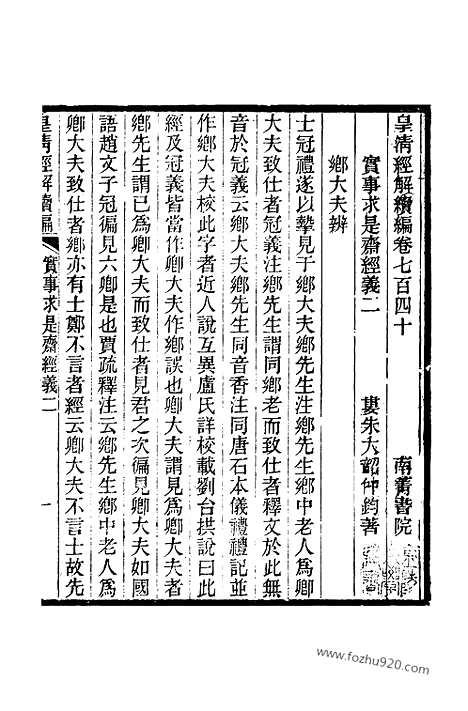 皇清經解續編卷七百四十
南菁書院
實事求是齋經義二
婁朱大韶仲鈞著
鄉大夫辨
士冠禮遂以摯見于鄉大夫鄉先生注鄉先生鄉中老人爲卿
大夫致仕者冠義注鄉先生同謂鄉老而致仕者釋文於此無
音於冠義云鄉大夫鄉先生同音香注同唐石本儀禮禮記並
作鄉大夫校此字者近人說互異盧氏詳校載劉台拱說曰此
經及冠義皆當作卿大夫作鄉誤也卿大夫謂見爲卿大夫者
鄉先生謂已爲卿大夫而致仕者見君之次徧見卿大夫如國
語趙文子冠徧見六卿是也賈疏釋注云鄉先生鄉中老人爲
卿大夫致仕者鄉亦有士鄭不言者經云卿大夫不言士故先
皇清經解續編
實事求是齋經義二
一
www.fozhu920.com